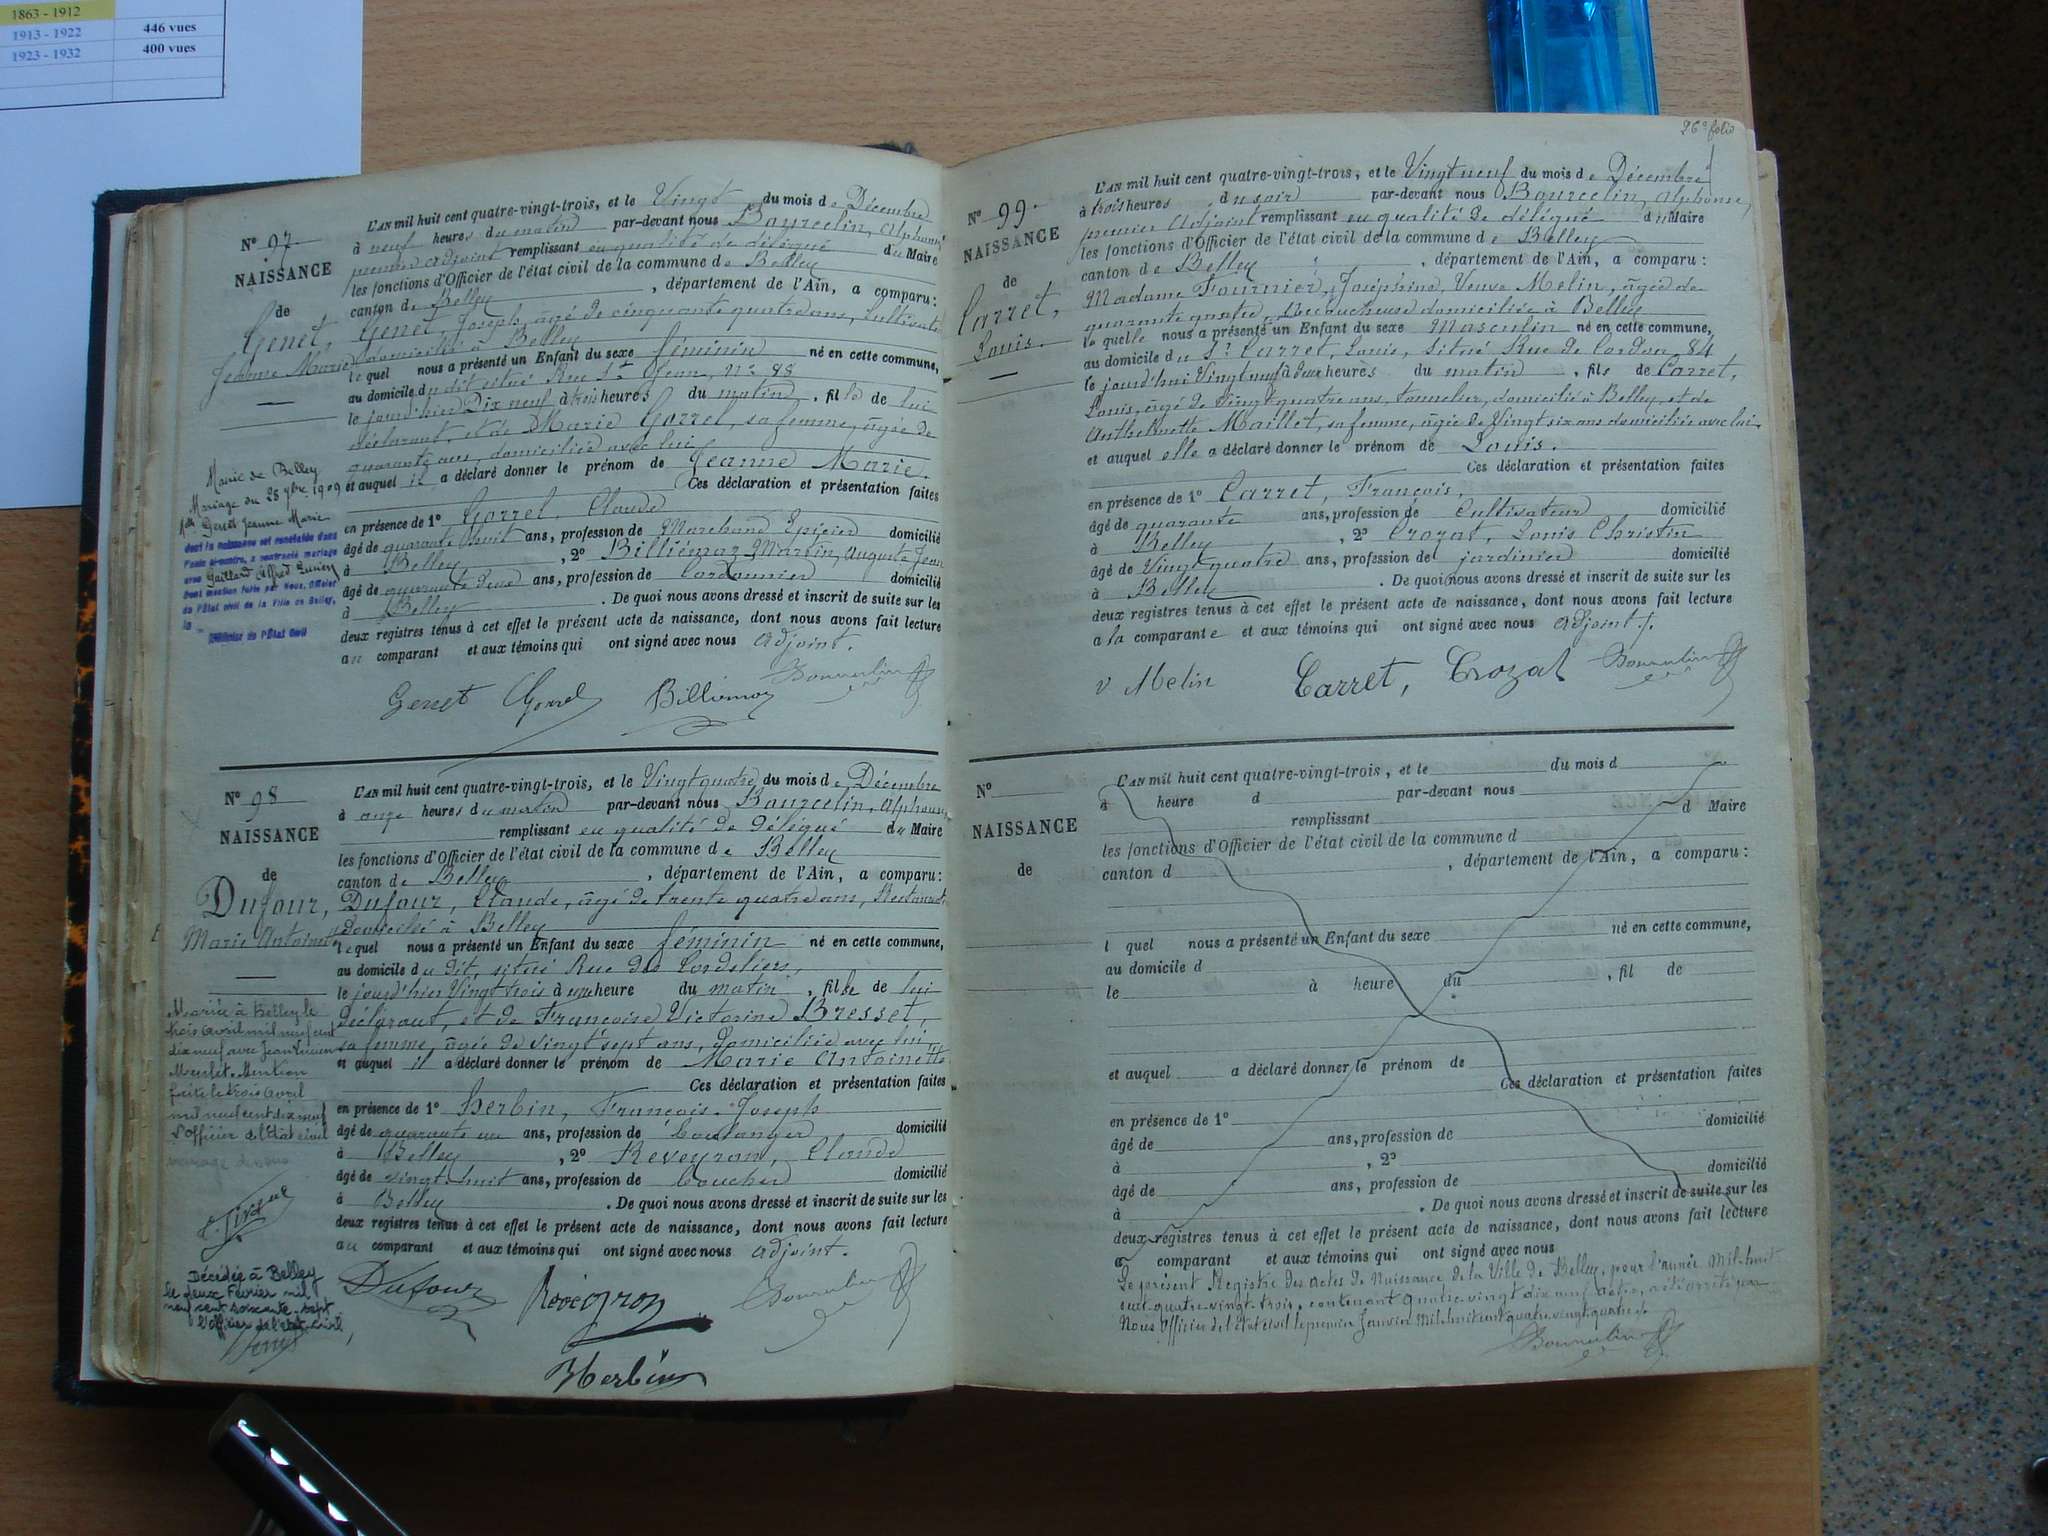 1863 - 1912
1913 - 1922 446 vues
1923 - 1932 400 vues
N° 97
NAISSANCE
de
Genet,
Jeanne Marie
Mairie de Belley
Mariage du 25 9bre 1909
Genet Jeanne Marie
dont la naissance est constatée dans
l'acte ci-contre, a contracté mariage
avec Gaillard Alfred Lucien
Dont mention faite par Nous, Officier
de l'État civil de la Ville de Belley,
le
L'AN mil huit cent quatre-vingt-trois, et le Vingt du mois de Décembre
à neuf heures du matin par-devant nous Bourcelin, Alphonse
premier adjoint remplissant en qualité de délégué du Maire
les fonctions d'Officier de l'état civil de la commune de Belley
canton de Belley, département de l'Ain, a comparu :
Genet, Joseph, âgé de cinquante quatre ans, cultivateur
domicilié à Belley
lequel nous a présenté un Enfant du sexe féminin né en cette commune,
au domicile du dit situé Rue St Jean, N° 98
le jourd'hier Dix neuf à trois heures du matin, fille de lui
déclarant, et de Marie Gorrel, sa femme, âgée de
quarante ans, domiciliée avec lui
et auquel il a déclaré donner le prénom de Jeanne Marie.
Ces déclaration et présentation faites
en présence de 1° Gorrel, Claude
âgé de quarante huit ans, profession de Marchand Epicier domicilié
à Belley, 2° Billiémaz, Martin, Auguste Jean
âgé de quarante deux ans, profession de Cordonnier domicilié
à Belley. De quoi nous avons dressé et inscrit de suite sur les
deux registres tenus à cet effet le présent acte de naissance, dont nous avons fait lecture
au comparant et aux témoins qui ont signé avec nous adjoint.
Genet Gorrel Billiémaz Bourcelin
N° 98
NAISSANCE
de
Dufour,
Marie Antoinette
Mariée à Belley le
trois avril mil neuf cent
dix neuf avec Jean
Mention
faite le trois avril
mil neuf cent dix neuf
L'officier de l'Etat civil
Décédée à Belley
le deux Février mil
neuf cent soixante-sept
L'officier de l'état civil
L'AN mil huit cent quatre-vingt-trois, et le Vingt quatre du mois de Décembre
à onze heures du matin par-devant nous Bourcelin, Alphonse
remplissant en qualité de délégué du Maire
les fonctions d'Officier de l'état civil de la commune de Belley
canton de Belley, département de l'Ain, a comparu :
Dufour, Claude, âgé de trente quatre ans,
domicilié à Belley
lequel nous a présenté un Enfant du sexe féminin né en cette commune,
au domicile du dit, situé Rue des Cordeliers,
le jourd'hier Vingt trois à une heure du matin, fille de lui
déclarant, et de Françoise Victorine Bresset,
sa femme, âgée de vingt sept ans, domiciliée avec lui
et auquel il a déclaré donner le prénom de Marie Antoinette
Ces déclaration et présentation faites
en présence de 1° Herbin, François-Joseph
âgé de quarante un ans, profession de boulanger domicilié
à Belley, 2° Reveyron, Claude
âgé de vingt-huit ans, profession de boucher domicilié
à Belley. De quoi nous avons dressé et inscrit de suite sur les
deux registres tenus à cet effet le présent acte de naissance, dont nous avons fait lecture
au comparant et aux témoins qui ont signé avec nous adjoint.
Dufour Reveyron Bourcelin
Herbin
26e folio
N° 99.
NAISSANCE
de
Carret,
Louis.
L'AN mil huit cent quatre-vingt-trois, et le Vingt neuf du mois de Décembre
à trois heures du soir par-devant nous Bourcelin, Alphonse,
premier Adjoint remplissant en qualité de délégué du Maire
les fonctions d'Officier de l'état civil de la commune de Belley
canton de Belley, département de l'Ain, a comparu :
Madame Fournier, Joséphine, Veuve Melin, âgée de
quarante quatre, accoucheuse domiciliée à Belley
laquelle nous a présenté un Enfant du sexe Masculin né en cette commune,
au domicile du Sr Carret, Louis, situé Rue de Cordon, 84
le jourd'hui Vingt neuf à deux heures du matin, fils de Carret,
Louis, âgé de Vingt quatre ans, tonnelier, domicilié à Belley, et de
Anthelmette Maillet, sa femme, âgée de Vingt six ans domiciliée avec lui
et auquel elle a déclaré donner le prénom de Louis.
Ces déclaration et présentation faites
en présence de 1° Carret, François,
âgé de quarante ans, profession de Cultivateur domicilié
à Belley, 2° Crozat, Louis Christin
âgé de Vingt quatre ans, profession de jardinier domicilié
à Belley. De quoi nous avons dressé et inscrit de suite sur les
deux registres tenus à cet effet le présent acte de naissance, dont nous avons fait lecture
a la comparante et aux témoins qui ont signé avec nous adjoint.
v Melin Carret, Crozat Bourcelin
N°
NAISSANCE
de
L'AN mil huit cent quatre-vingt-trois, et le du mois d
à heure d par-devant nous
remplissant d Maire
les fonctions d'Officier de l'état civil de la commune d
canton d, département de l'Ain, a comparu :
l quel nous a présenté un Enfant du sexe né en cette commune,
au domicile d
le à heure du, fil de
et auquel a déclaré donner le prénom de
Ces déclaration et présentation faites
en présence de 1° domicilié
âgé de ans, profession de
à, 2°
âgé de ans, profession de domicilié
à. De quoi nous avons dressé et inscrit de suite sur les
deux registres tenus à cet effet le présent acte de naissance, dont nous avons fait lecture
a comparant et aux témoins qui ont signé avec nous
Le présent Registre des actes de Naissance de la Ville de Belley, pour l'année Mil huit
cent quatre-vingt-trois, contenant quatre-vingt dix neuf actes, a été arrêté par
Nous Officier de l'état civil le premier Janvier Mil huit cent quatre vingt quatre.
Bourcelin